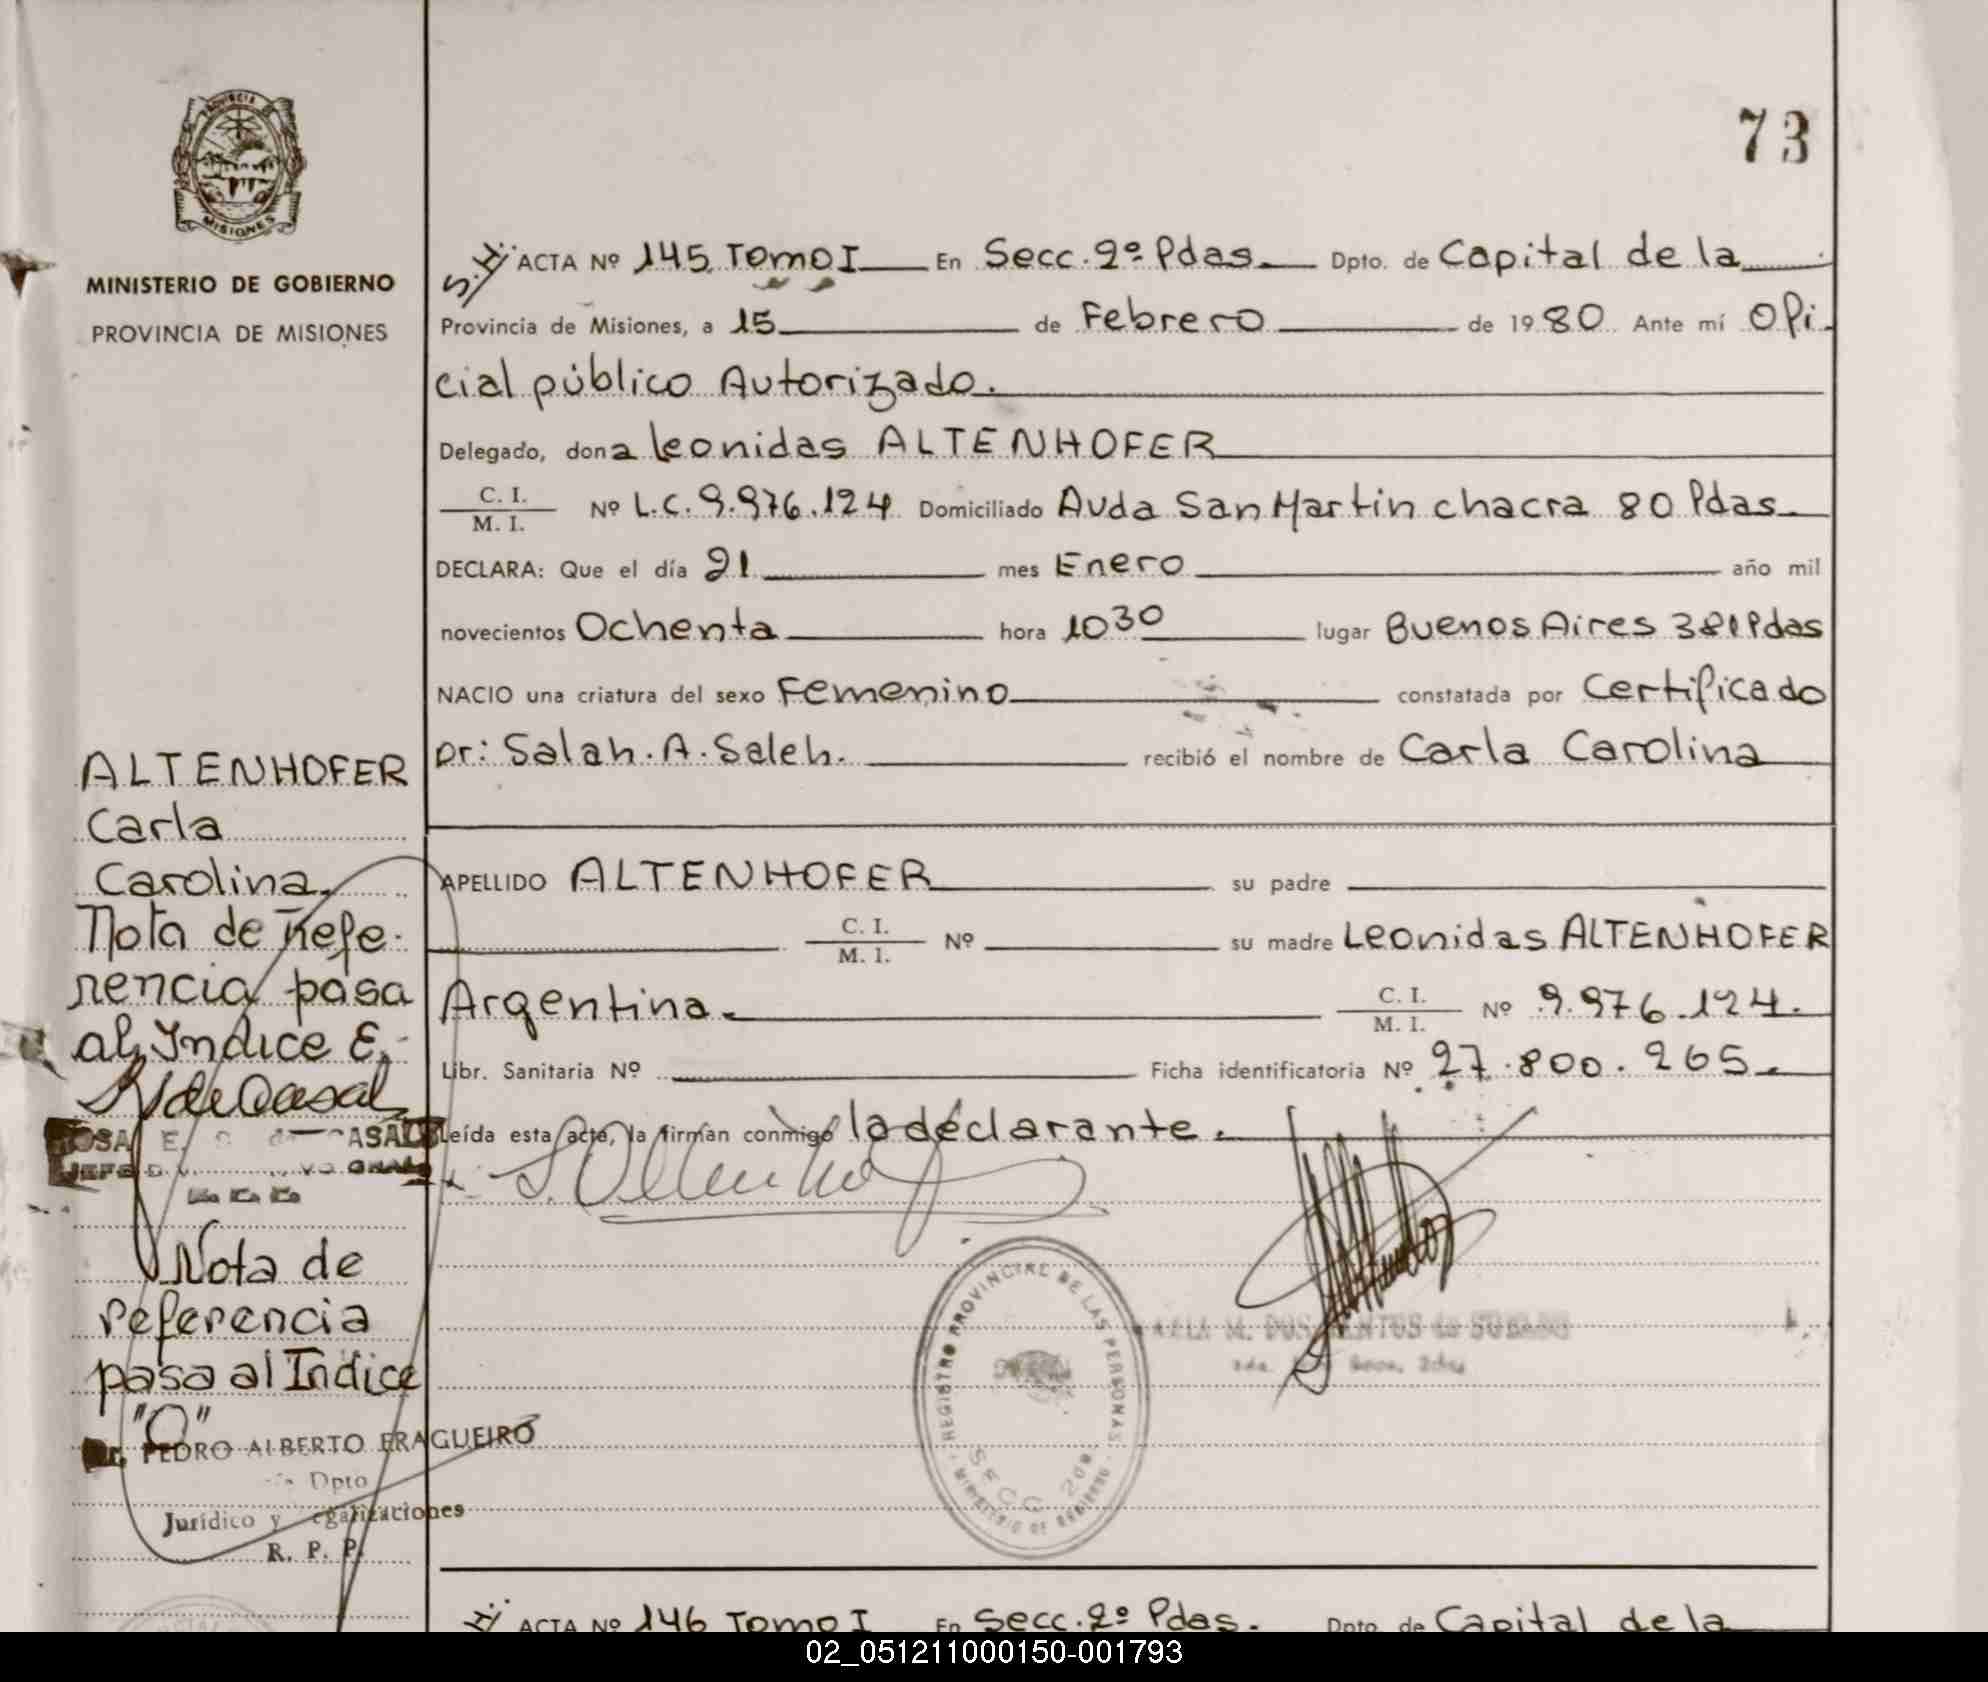 73
PROVINCIA DE
MISIONES
MINISTERIO DE GOBIERNO
PROVINCIA DE MISIONES
ACTA Nº 145 Tomo I En Secc. 2º Pdas. Dpto. de Capital de la
Provincia de Misiones, a 15 de Febrero de 1980 Ante mí Ofi
cial público Autorizado.
Delegado, dona Leonidas ALTENHOFER
C. I.
M. I. Nº L.C. 9.976.124 Domiciliado Avda San Martin chacra 80 Pdas.
DECLARA: Que el día 21 mes Enero año mil
novecientos Ochenta hora 10 30 lugar Buenos Aires 381 Pdas
NACIO una criatura del sexo Femenino constatada por Certificado
Dr: Salah. A. Saleh. recibió el nombre de Carla Carolina
APELLIDO ALTENHOFER su padre
C. I.
M. I. Nº su madre Leonidas ALTENHOFER
Argentina. C. I.
M. I. Nº 9.976.124.
Libr. Sanitaria Nº Ficha identificatoria Nº 27.800.265.
Leída esta acta, la firman conmigo la declarante.
ALTENHOFER
Carla
Carolina.
Nota de Refe-
rencia pasa
al Indice E.
R de Casal
ROSA E. de CASAL
JEFE
Nota de
referencia
pasa al Indice
"O"
Dr. PEDRO ALBERTO FRAGUEIRO
Dpto
Jurídico y egalizaciones
R. P. P.
REGISTRO PROVINCIAL DE LAS PERSONAS
SECC 2da
MINISTERIO DE GOBIERNO
M. DOS SANTOS de
ACTA Nº 146 Tomo I En Secc. 2º Pdas. Dpto. de Capital de la
02_051211000150-001793